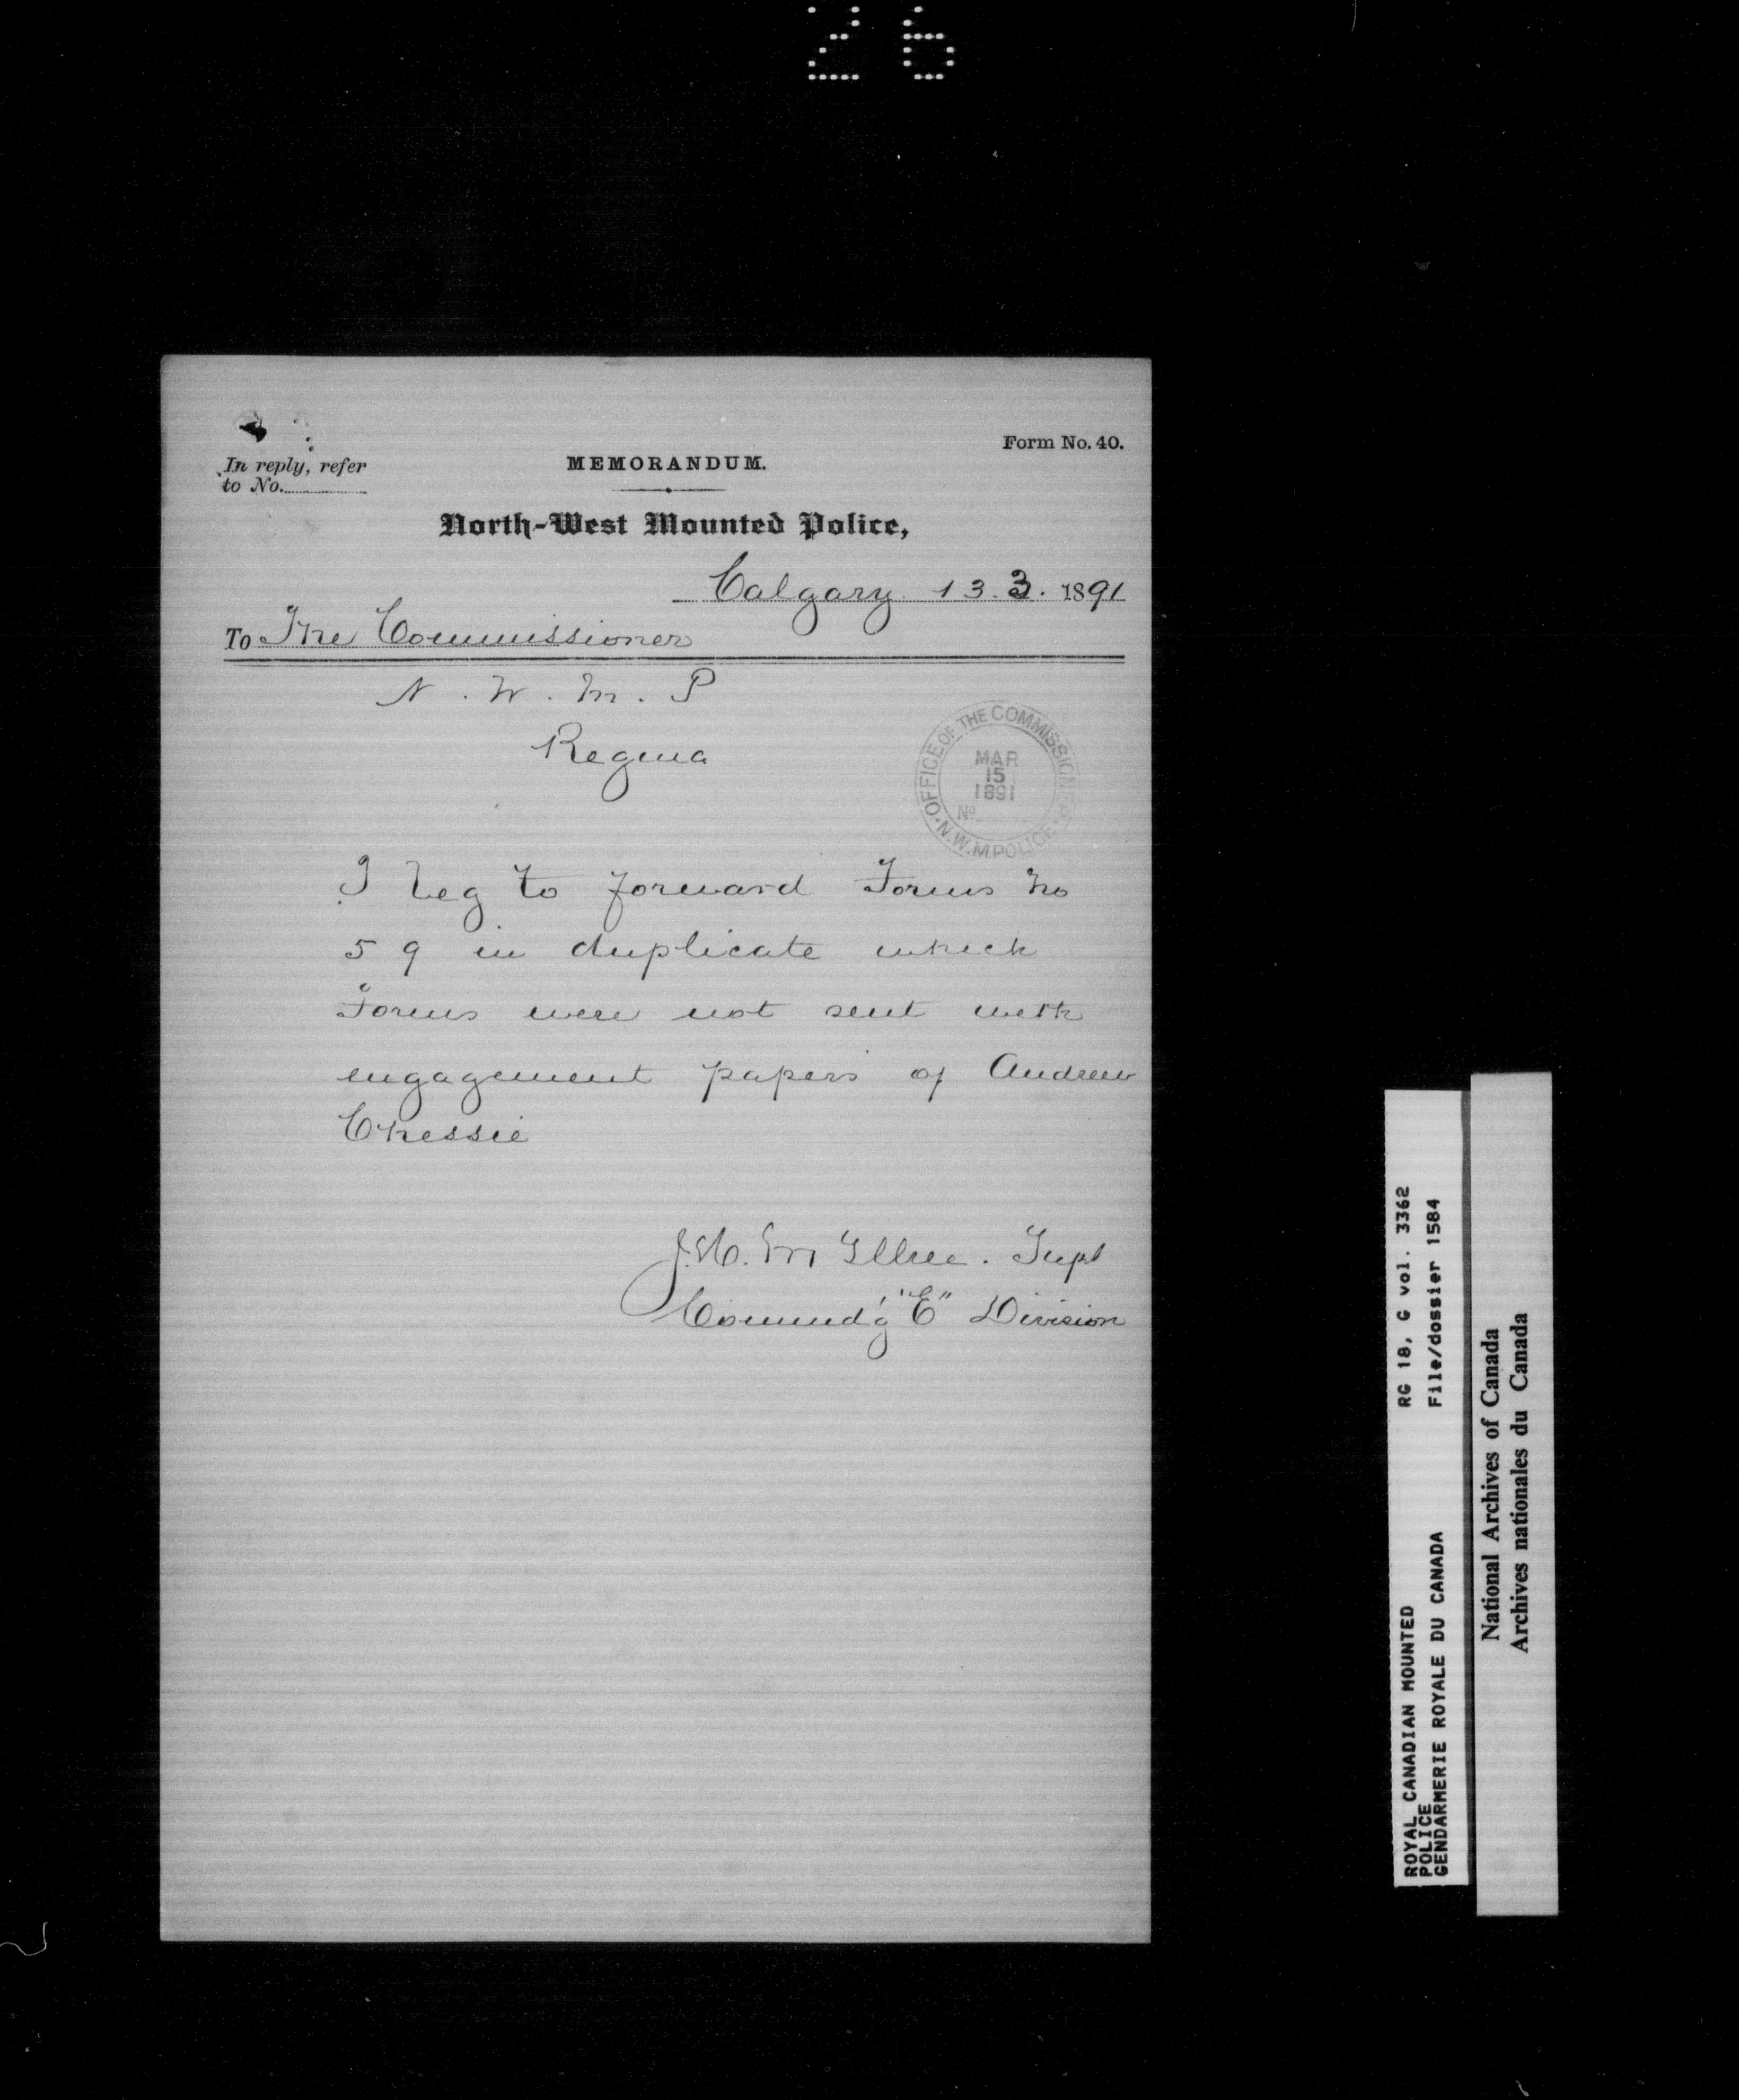 26
Form No. 40.
In reply, refer
to No.
MEMORANDUM.
North-West Mounted Police,
Calgary 13.3. 1891
To The Commissioner
N. W. M. P
Regina
OFFICE OF THE COMMISSIONER
MAR
15
1891
No
N.W.M.POLICE
I beg to forward Forms No
59 in duplicate which
Forms were not sent with
engagement papers of Andrew
Chessie
J.H. McIllree. Supt
Commd'g "E" Division
ROYAL CANADIAN MOUNTED
POLICE
GENDARMERIE ROYALE DU CANADA
RG 18, G vol. 3362
File/dossier 1584
National Archives of Canada
Archives nationales du Canada